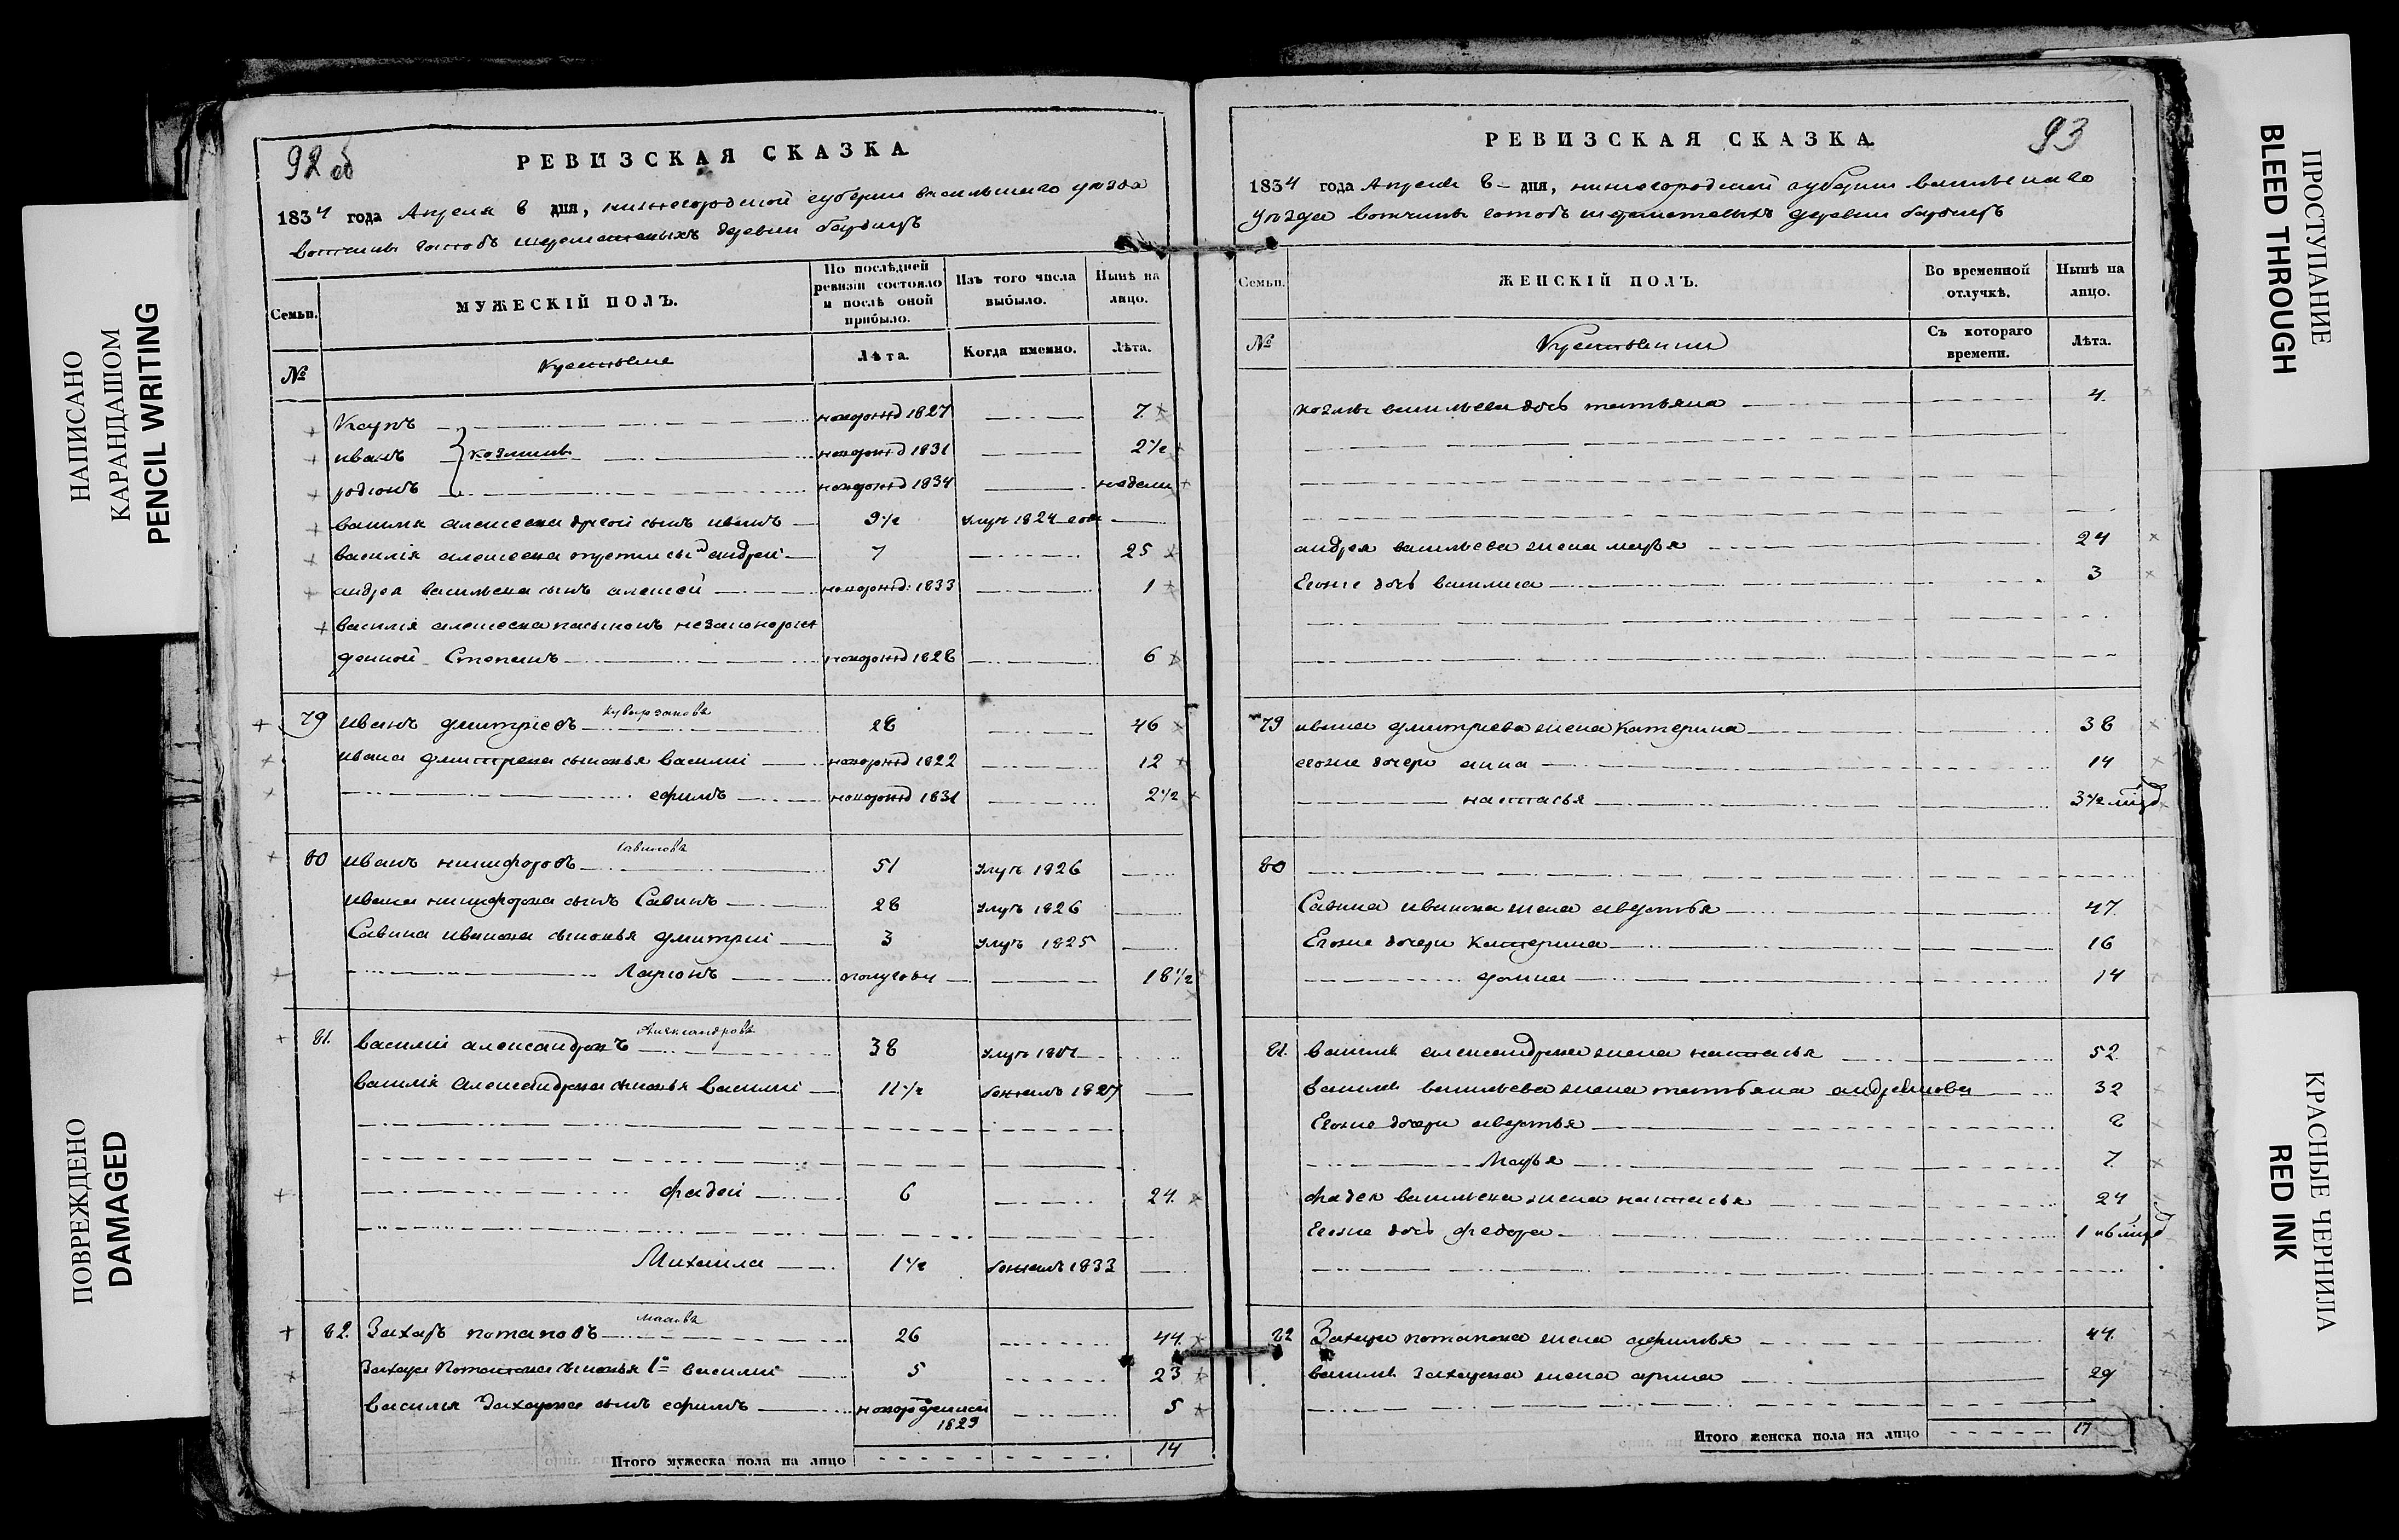 НАПИСАНО
КАРАНДАШОМ
PENCIL WRITING
ПОВРЕЖДЕНО
DAMAGED
92 об
РЕВИЗСКАЯ СКАЗКА
1834 года Апреля 8 дня, нижегородской губернии васильского уезда
вотчины господъ шереметевыхъ деревни
Семьи.
МУЖЕСКІЙ ПОЛЪ.
По послѣдней ревизіи состояло и послѣ оной прибыло.
Изъ того числа выбыло.
Нынѣ на лицо.
№
Крестьяне
Лѣта.
Когда именно.
Лѣта.
Карпъ новорожд 1827 7
иванъ козмины новорожд 1831 2 1/2
родионъ новорожд 1834 недели
василья алексеева другой сынъ иванъ 9 1/2 умръ 1824 года
василія алексеева третий сынъ андрей 7 25
андрея васильева сынъ алексей новорожд: 1833 1
василія алексеева пасынокъ незаконорож
денной Степанъ новорожд 1828 6
79 иванъ дмитриевъ 28 46
ивана дмитрева сыновья василий новорожд 1822 12
ефимъ новорожд 1831 2 1/2
80 иванъ никифоровъ Савинова 51 умръ 1826
ивана никифорова сынъ Савинъ 28 умръ 1826
Савина иванова сыновья дмитрий 3 умръ 1825
Ларионъ полугоду 18 1/2
81. василий александровъ Александрова 38 умръ
василія александрова сыновья василий 11 1/2 бежалъ 1827
фадей 6 24.
Михаила 1 1/2 бежалъ 1833
82. Захаръ потаповъ 26 44.
Захара Потапова сыновья 1й василий 5 23
василья Захарова сынъ ефимъ новорожденной 1829 5
Итого мужеска пола на лицо 14
РЕВИЗСКАЯ СКАЗКА
93
1834 года Апреля 8 дня, нижегородской губернии васильскаго
уезда вотчины господъ шереметевыхъ деревни
Семьи.
ЖЕНСКІЙ ПОЛЪ.
Во временной отлучкѣ.
Нынѣ на лицо.
№
Крестьянки
Съ котораго времени.
Лѣта.
козмы васильева дочь татьяна 4.
андрея васильева жена марья 24
Егоже дочь василиса 3
79 ивана дмитриева жена Катерина 38
егоже дочери анна 14
настасья 3 1/2
80
Савина иванова жена авдотья 47.
Егоже дочери Катерина 16
домна 14
81. василья александрова жена настасья 52
василья васильева жена татьяна 32
Егоже дочери авдотья 8
Марья 7.
фадея васильева жена настасья 24
Егоже дочь федора 1
82 Захара потапова жена афимья 44.
василья захарова жена арина 29
Итого женска пола на лицо 17
ПРОСТУПАНИЕ
BLEED THROUGH
КРАСНЫЕ ЧЕРНИЛА
RED INK